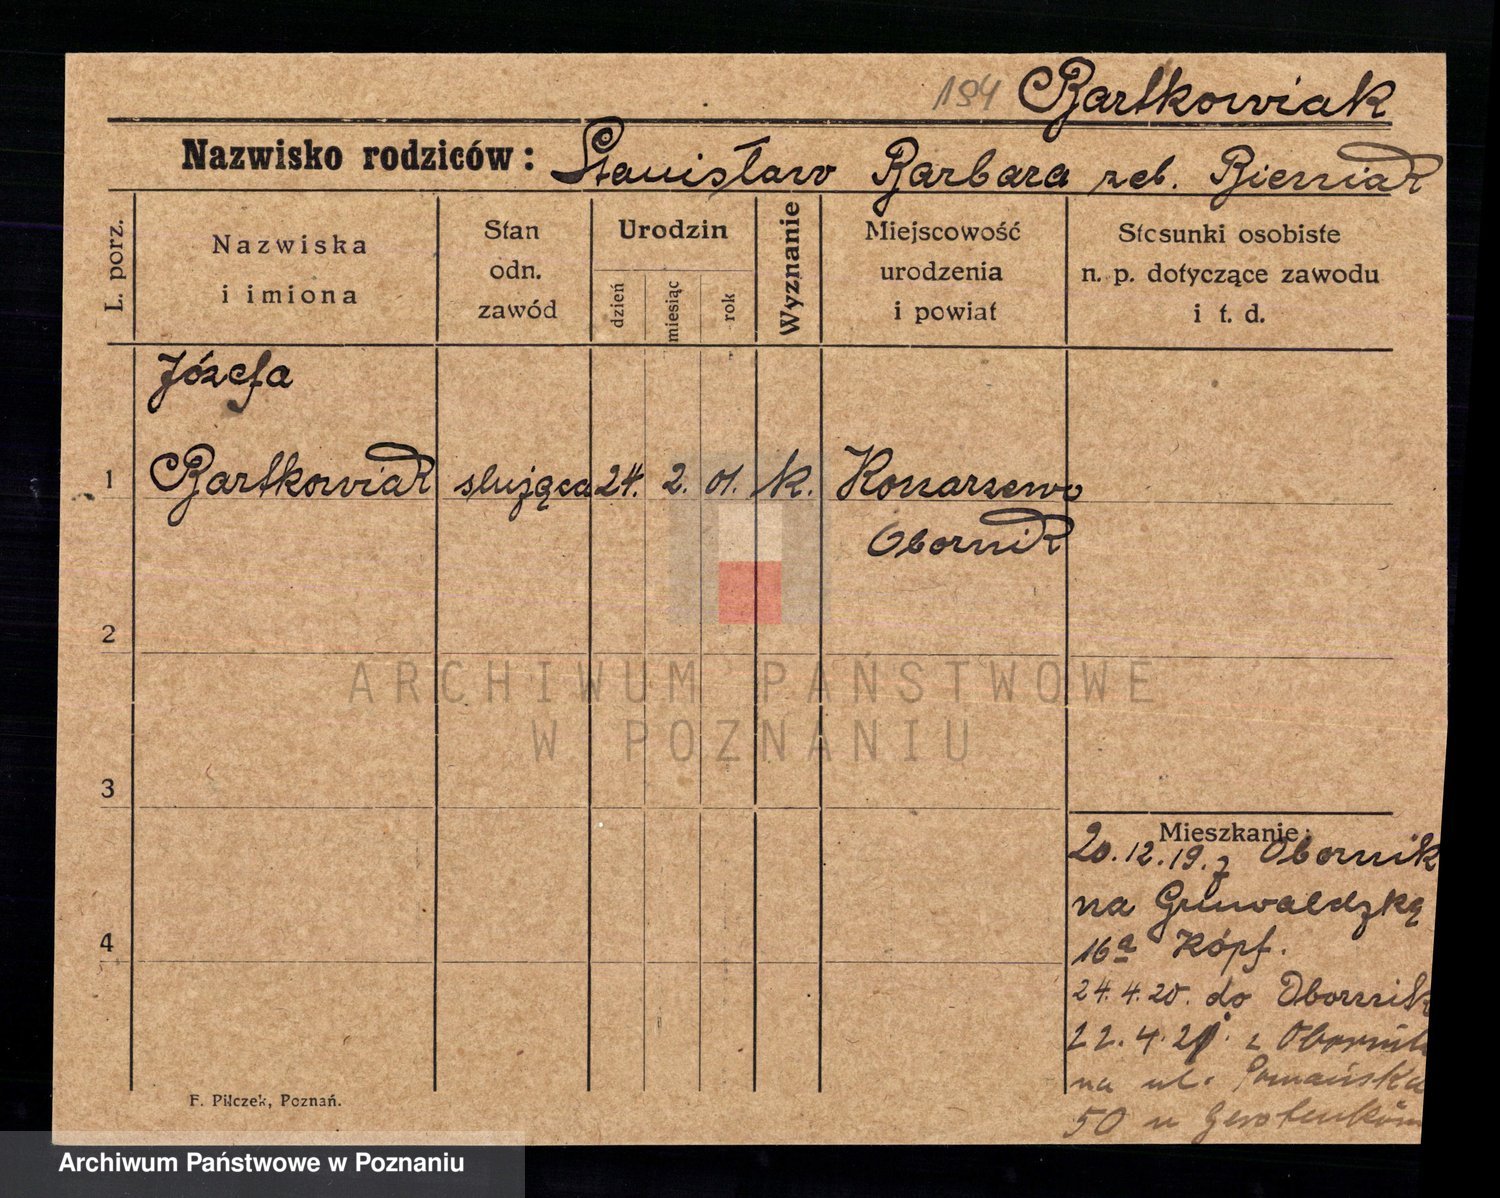 194 Bartkowiak
Nazwisko rodziców: Stanisław Barbara reb. Bierniak
L. porz.
Nazwiska
i imiona
Stan
odn.
zawód
Urodzin
dzień
miesiąc
rok
Wyznanie
Miejscowość
urodzenia
i powiat
Stosunki osobiste
n. p. dotyczące zawodu
i t. d.
Józefa
1 Bartkowiak służąca 24. 2. 01. k. Konarzewo
Obornik
2
3
4
Mieszkanie:
20.12.19. z Obornik
na Grunwaldzką
16a Kópf.
24.4.20. do Obornik
22.4.21. z Obornik
na ul. Poznańska
50 u
F. Pilczek, Poznań.
ARCHIWUM PAŃSTWOWE
W POZNANIU
Archiwum Państwowe w Poznaniu